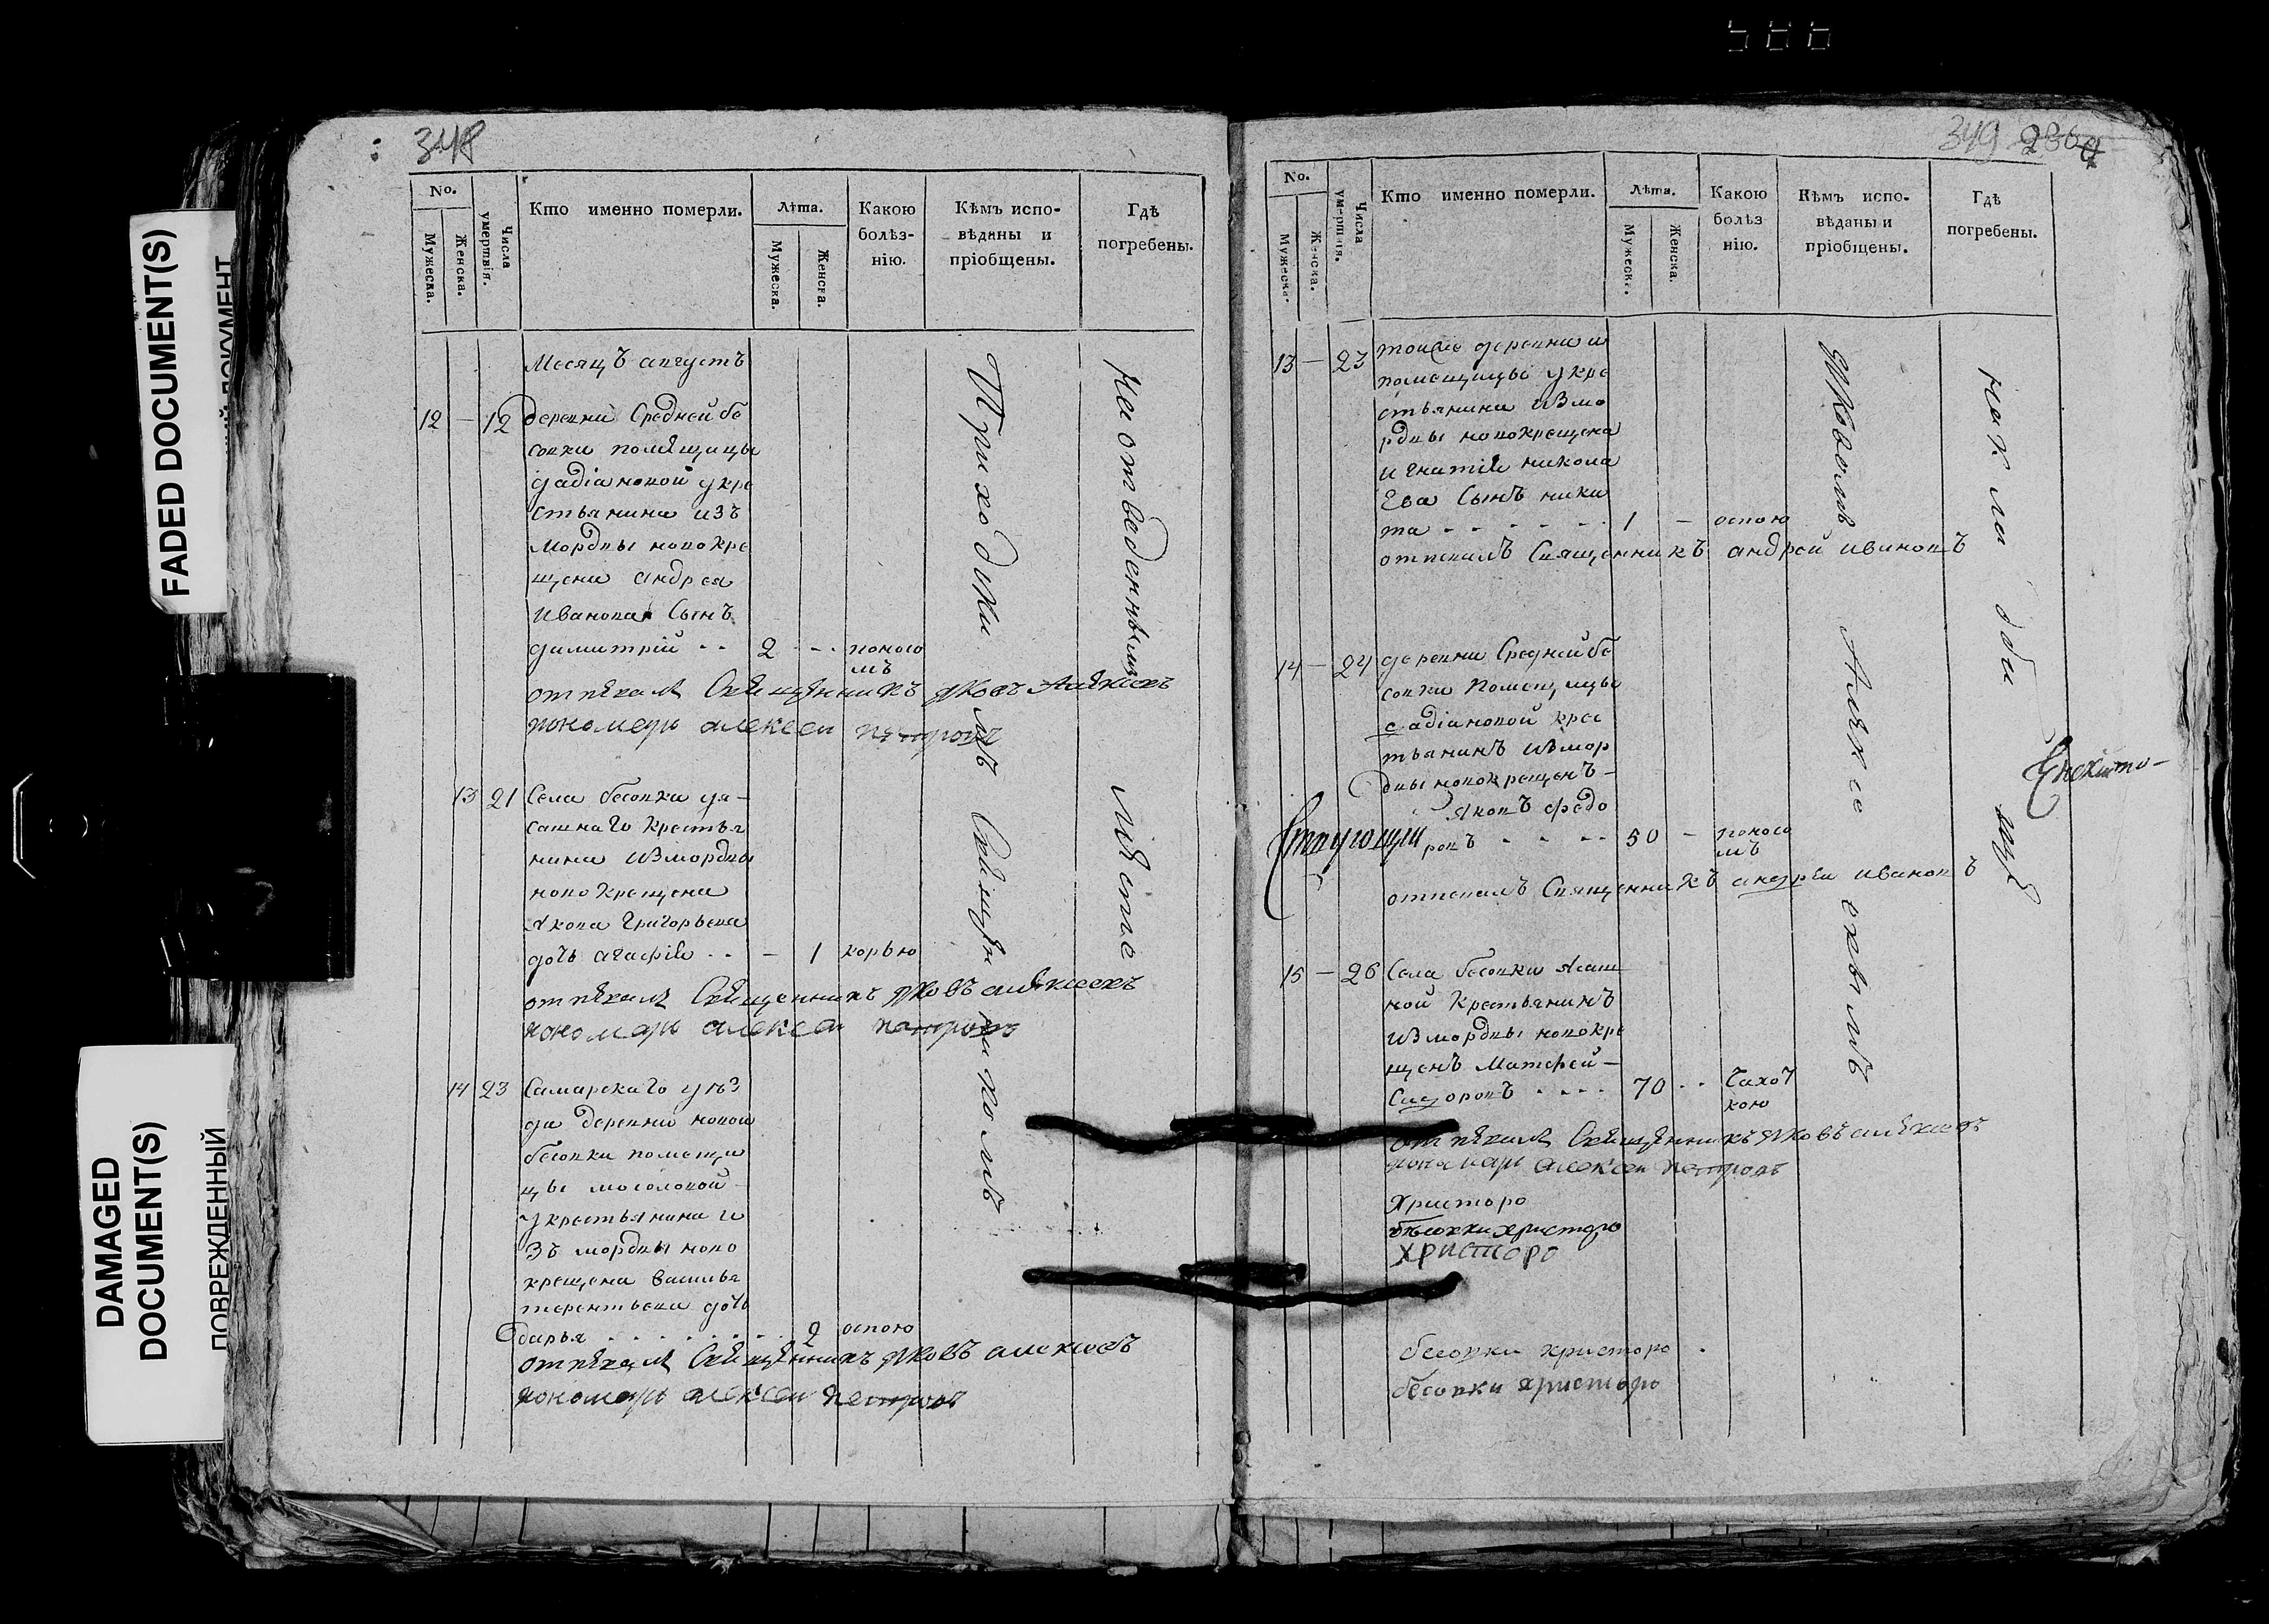 FADED DOCUMENT(S)
DAMAGED
DOCUMENT(S)
ПОВРЕЖДЕННЫЙ
348
No.
Мужеска.
Женска.
Числа умертвія.
Кто именно померли.
Лѣта.
Мужеска.
Женска.
Какою болѣз-
нію.
Кѣмъ испо-
вѣданы и
пріобщены.
Гдѣ
погребены.
Месяцъ августъ
12 — 12 деревни Средней бе
совки помѣщицы
укре
стьянина изъ
Мордвы новокре
щена андрея
Иванова Сынъ
димитрій - - 2 - - поносо
мъ
отпѣвалъ Священникъ Яковъ Алексеевъ
пономарь алексеи петровъ
13 21 Села бесовки уя-
сашнаго крестья
нина изморъдвы
новокрещена
Якова Григорьева
дочь агафія - - — 1 корью
отпѣвалъ Священникъ Яковъ алексеевъ
пономарь алексеи петровъ
14 23 Самарскаго уѣз
да деревни новой
бесовки помещи
цы мосоловой
укрестьянина и
зъ мордвы ново
крещена василья
терентьева дочь
дарья . . . . . . . 2 оспою
отпѣвалъ Священникъ Яковъ алексеевъ
пономарь алексеи петровъ
Приходскимъ Священникомъ
На отведенныхъ мѣсте
349 236
No.
Мужеска.
Женска.
Числа умертвія.
Кто именно померли.
Лѣта.
Мужеска.
Женска.
Какою
болѣз
нію.
Кѣмъ испо-
вѣданы и
пріобщены.
Гдѣ
погребены.
13 — 23 тоиже деревни и
помещицы укре
стьянина измо
рдвы новокрещена
игнатія никола
Ева Сынъ ники
та - - - - - 1 — оспою
отпевалъ Священникъ андрей ивановъ
14 — 24 деревни Средней бе
совки помещицы
крес
тьянинъ измор
двы новокрещенъ -
Яковъ федо
ровъ - - - - 50 — поносо
мъ
отпевалъ Священникъ андреи ивановъ
15 — 26 Села бесовки Ясаш
ной крестьянинъ
измордвы новокре
щенъ Матфей -
Сидоровъ - - - - 70 - - Чахот
кою
отпѣвалъ Священникъ Яковъ алексеевъ
пономарь алексеи петровъ
Христоро
бѣсовки христоро
христоро
бесовки христоро
бесовки христоро
Яковомъ Алексеевымъ
на кладби